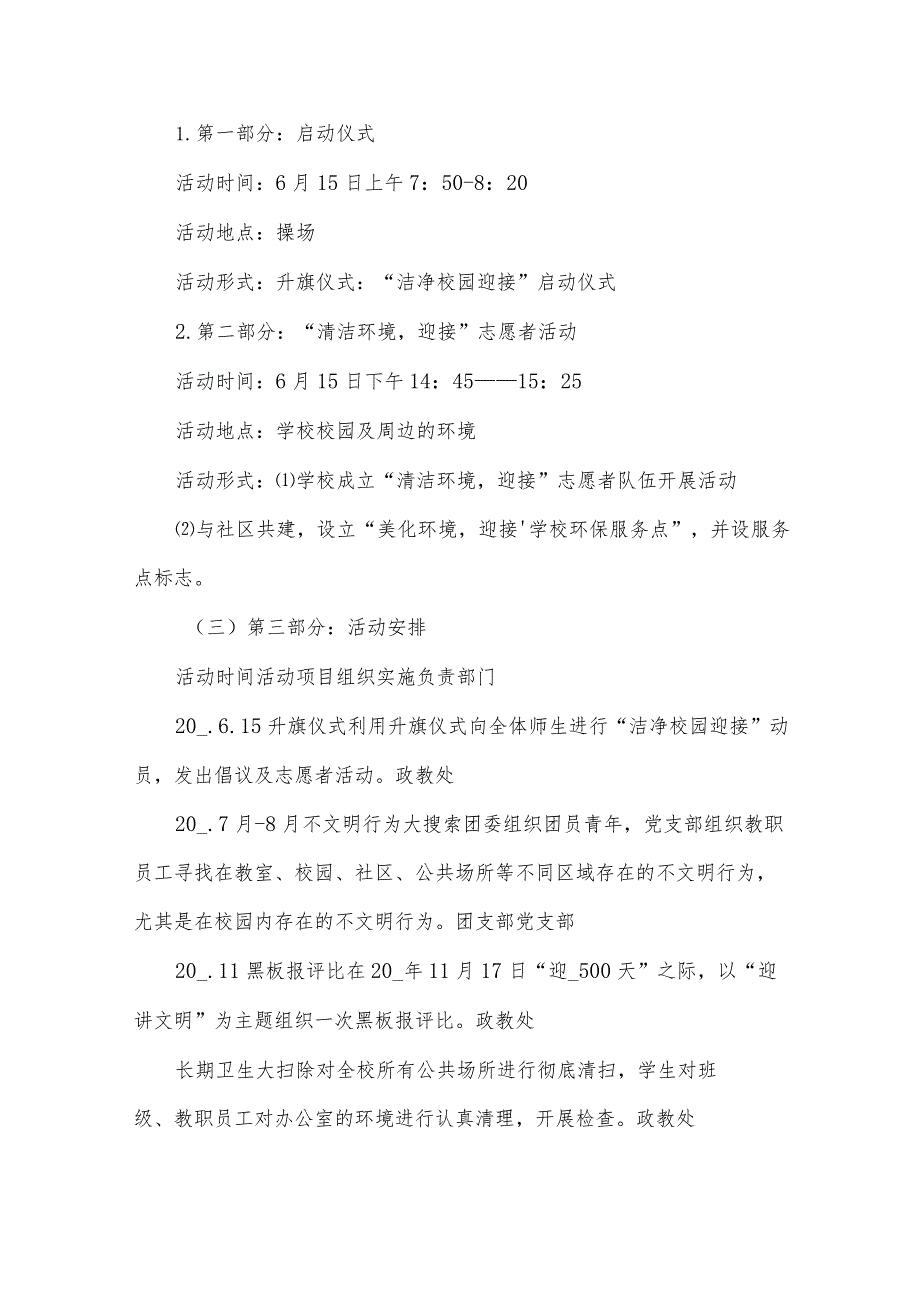 1.第一部分：启动仪式
活动时间：6月15日上午7：50-8：20
活动地点：操场
活动形式：升旗仪式：“洁净校园迎接”启动仪式
2.第二部分：“清洁环境，迎接”志愿者活动
活动时间：6月15日下午14：45——15：25
活动地点：学校校园及周边的环境
活动形式：⑴学校成立“清洁环境，迎接”志愿者队伍开展活动
⑵与社区共建，设立“美化环境，迎接'学校环保服务点”，并设服务
点标志。
（三）第三部分：活动安排
活动时间活动项目组织实施负责部门
20_.6.15升旗仪式利用升旗仪式向全体师生进行“洁净校园迎接”动
员，发出倡议及志愿者活动。政教处
20_.7月-8月不文明行为大搜索团委组织团员青年，党支部组织教职
员工寻找在教室、校园、社区、公共场所等不同区域存在的不文明行为，
尤其是在校园内存在的不文明行为。团支部党支部
20_.11黑板报评比在20_年11月17日“迎_500天”之际，以“迎
讲文明”为主题组织一次黑板报评比。政教处
长期卫生大扫除对全校所有公共场所进行彻底清扫，学生对班
级、教职员工对办公室的环境进行认真清理，开展检查。政教处